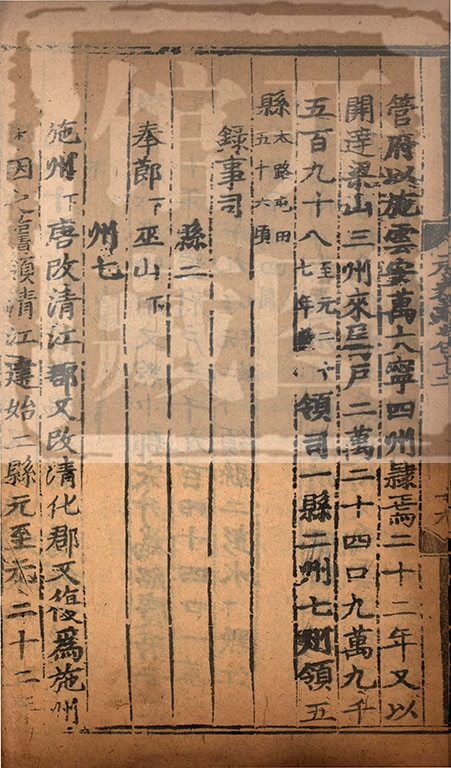 管府以施雲安萬大寧四州隸焉二十二年又以
開達梁山三州來屬戶二萬二十四口九萬九千
五百九十八至元二十七年數領司一縣二州七州領五
縣本路屯田五十六頃
錄事司
縣二
奉節下巫山下
州七
施州下唐改清江郡又改清化郡又復爲施州
因之舊領清江建始二縣元至元二十二年